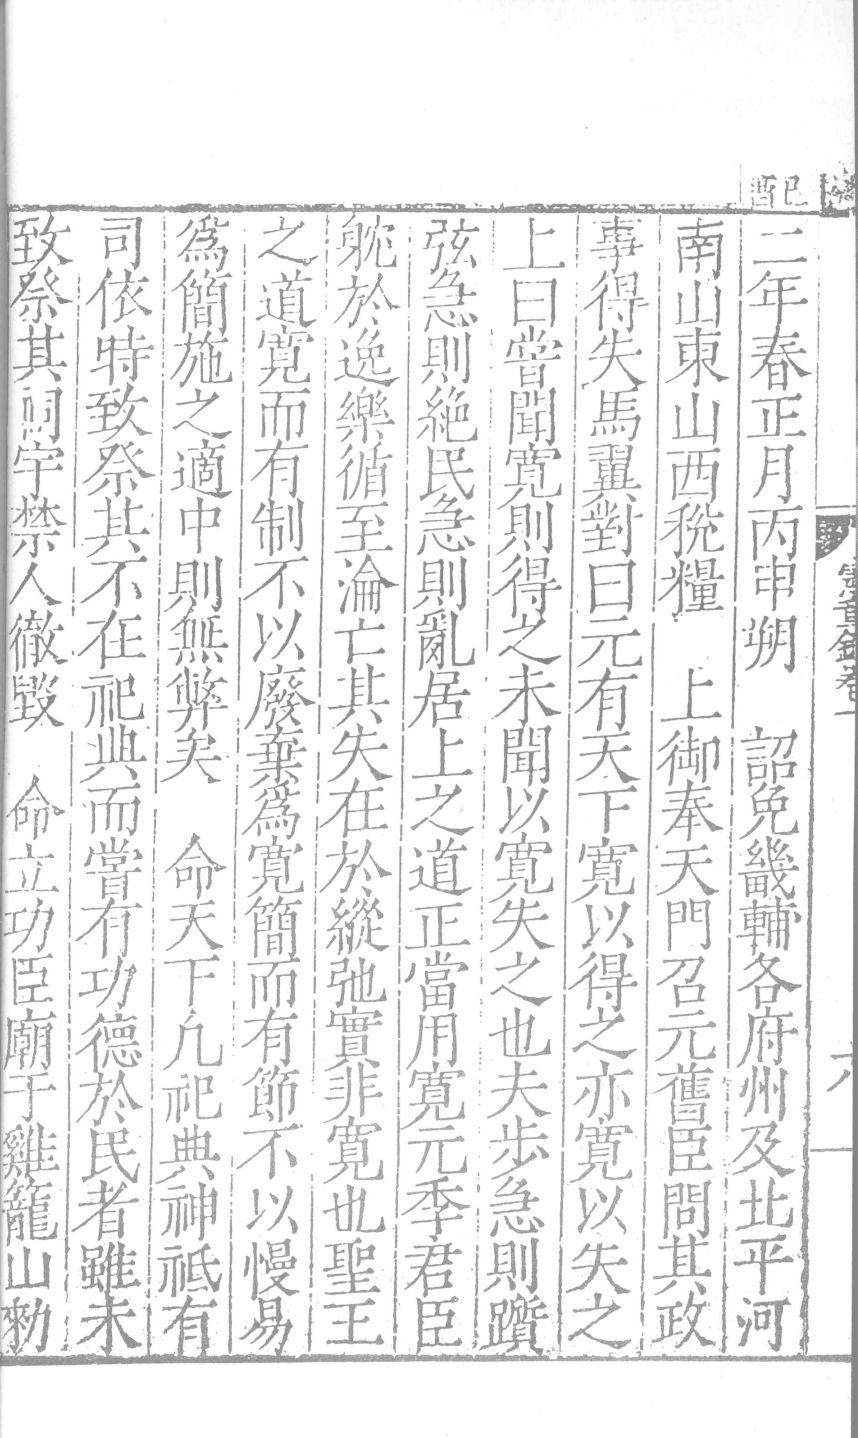 配
憲章錄卷一
二年春正月丙申朔　詔免畿輔各府州及北平河
南山東山西稅糧　上御奉天門召元舊臣問其政
事得失馬翼對曰元有天下寬以得之亦寬以失之
上曰嘗聞寬則得之未聞以寬失之也夫步急則躓
弦急則絶民急則亂居上之道正當用寬元季君臣
躭於逸樂循至淪亡其失在於縱弛實非寬也聖王
之道寬而有制不以廢棄爲寬簡而有節不以慢易
爲簡施之適中則無弊矣　命天下凢祀典神祗有
司依特致祭其不在祀典而嘗有功德於民者雖未
致祭其祠宇禁人徹毀　命立功臣廟于雞籠山勑